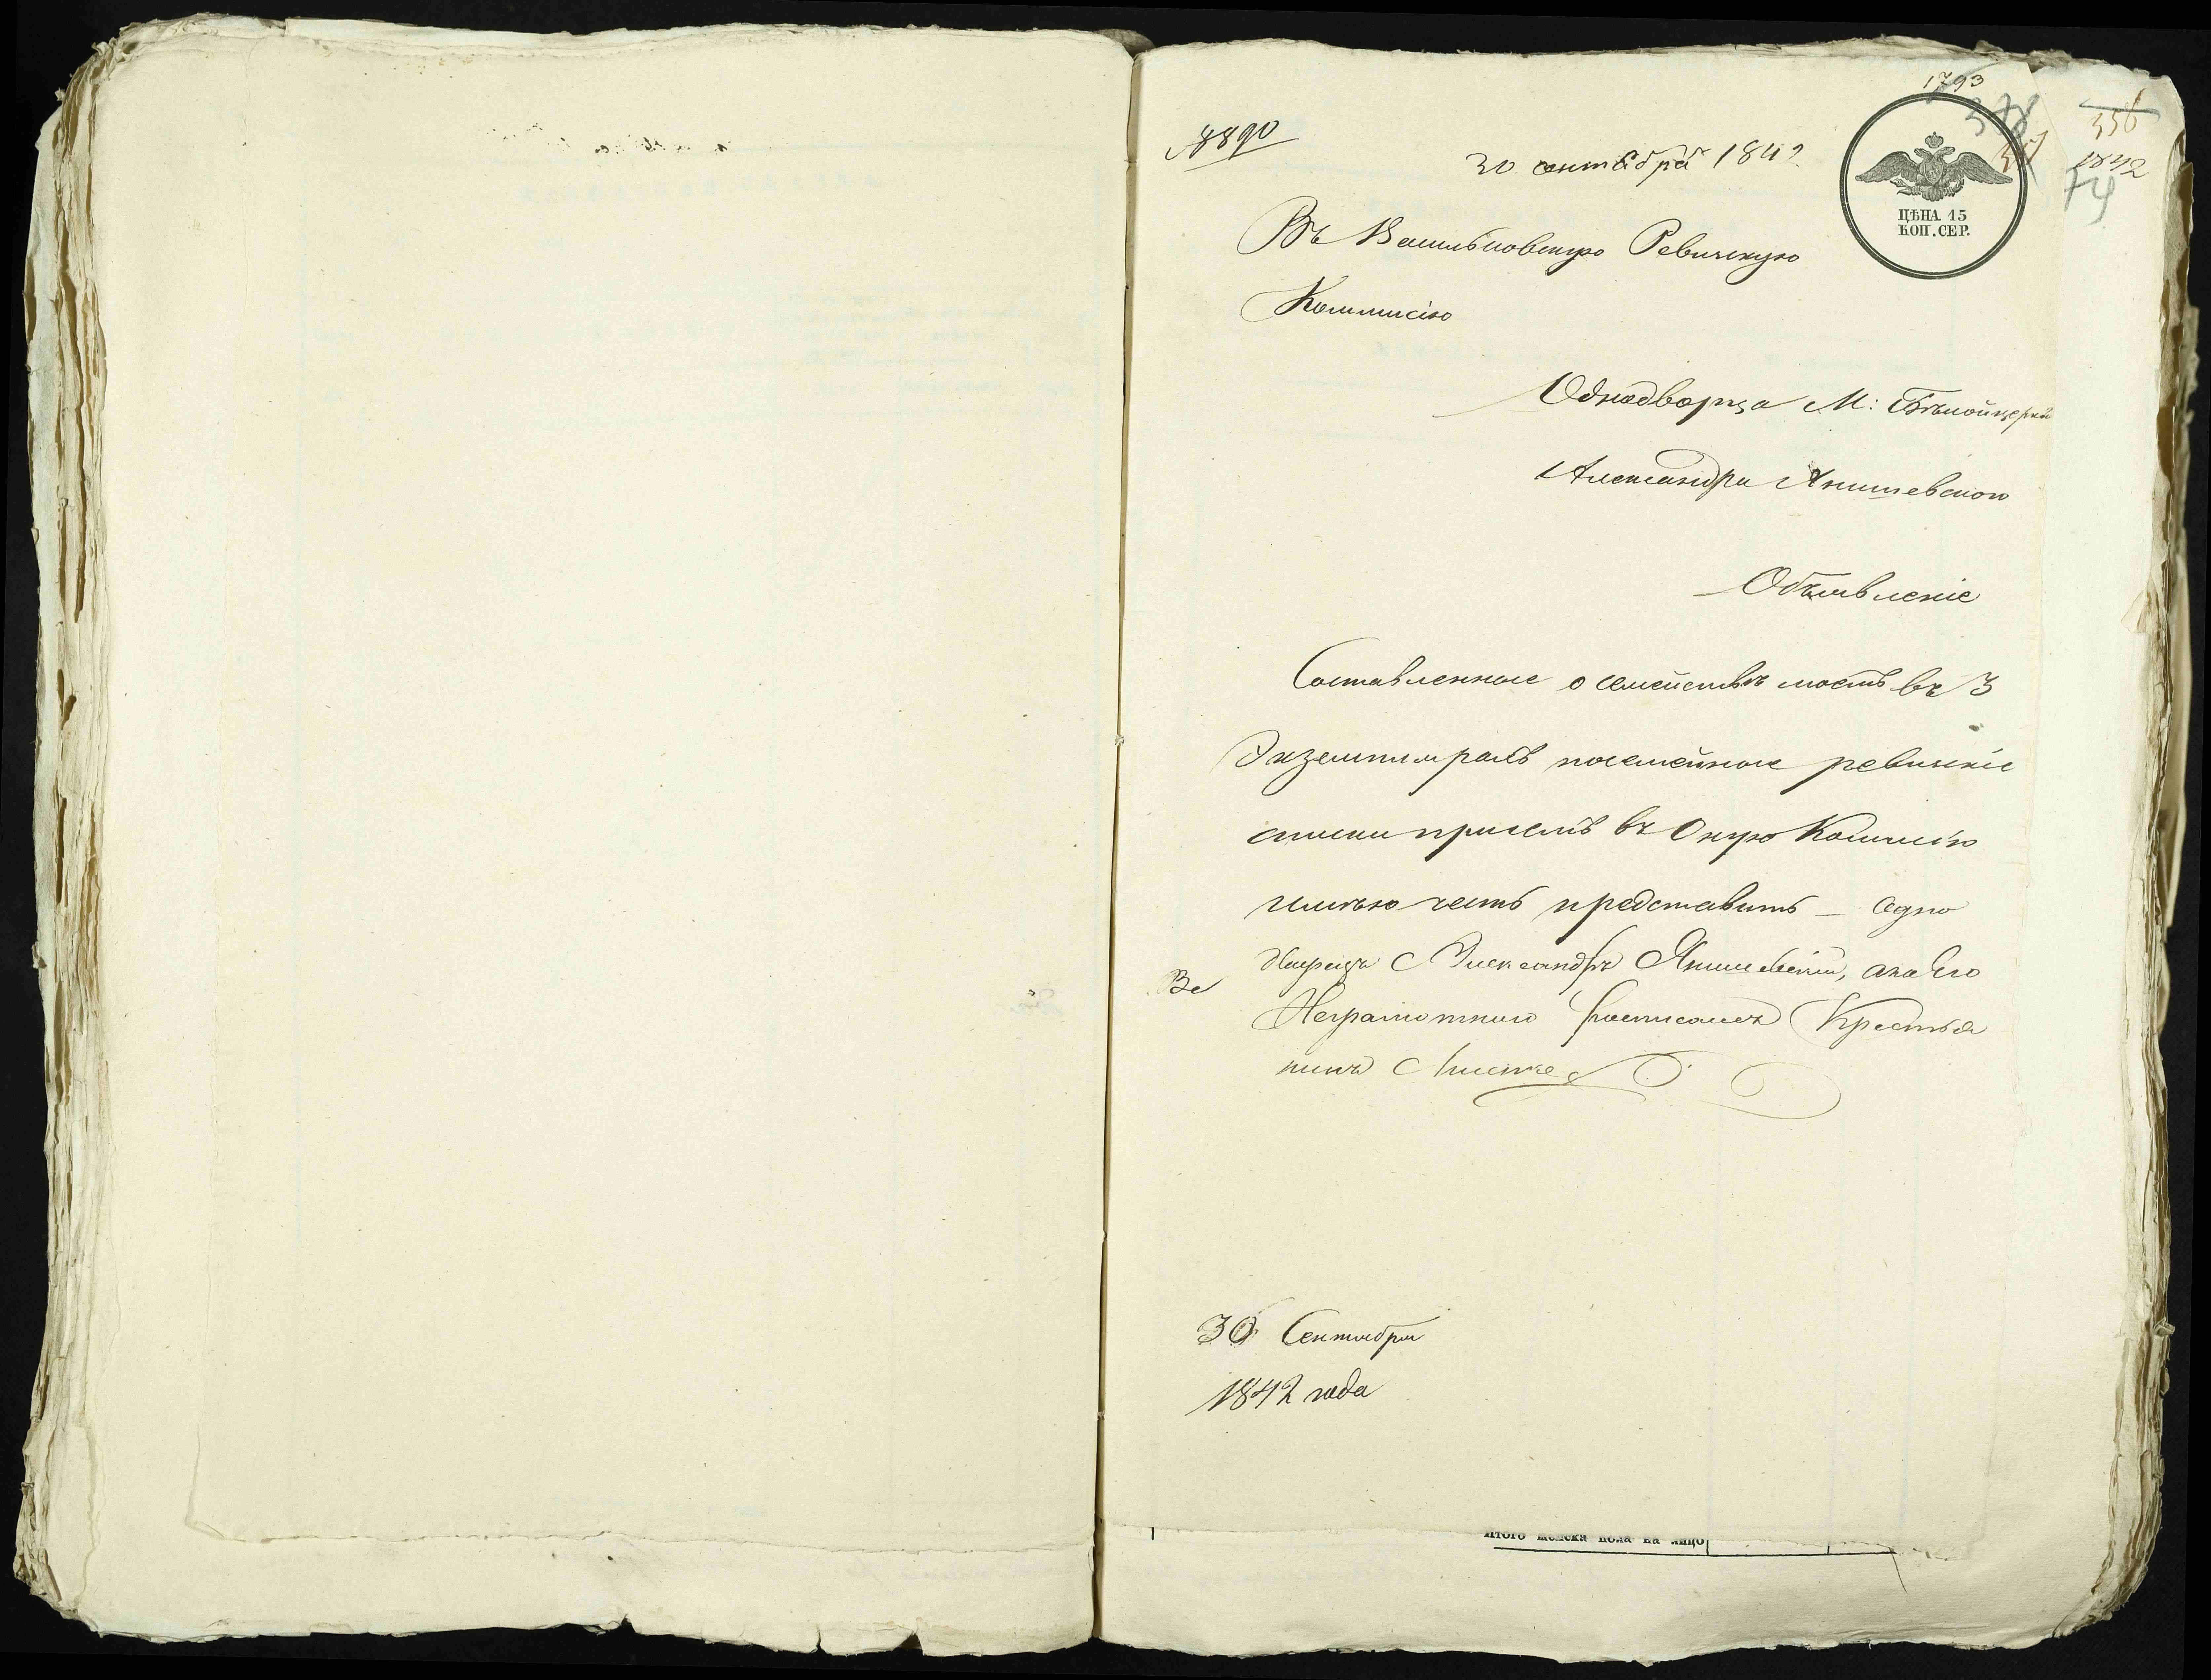 1793
378
356
1842
74
№ 8890
30 сентября 1842
ЦѢНА 15
КОП. СЕР.
Въ Васильковскую Ревижскую
Коммисію
Однодворца М: Бѣлойцеркви
Александра Янишевского
Объявленіе
Составленные о семействѣ моемъ въ 3
Экземплярахъ посемейные ревижскіе
списки присемъ въ Оную Комисію
имѣю честь представить – Одно
дворецъ Александръ Янишевскій, а на его
Неграмотного росписался Крестья
нинъ
30 Сентября
1842 года
Итого женска пола на лицо